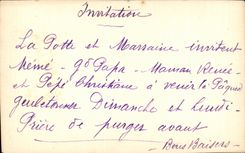 Invitation
La Totte et Marraine invitent
Mémé - gd Papa - Maman Renée -
et Pépé Christiane à venir la
Dimanche et Lundi -
Prière de purger avant
Bons Baisers -